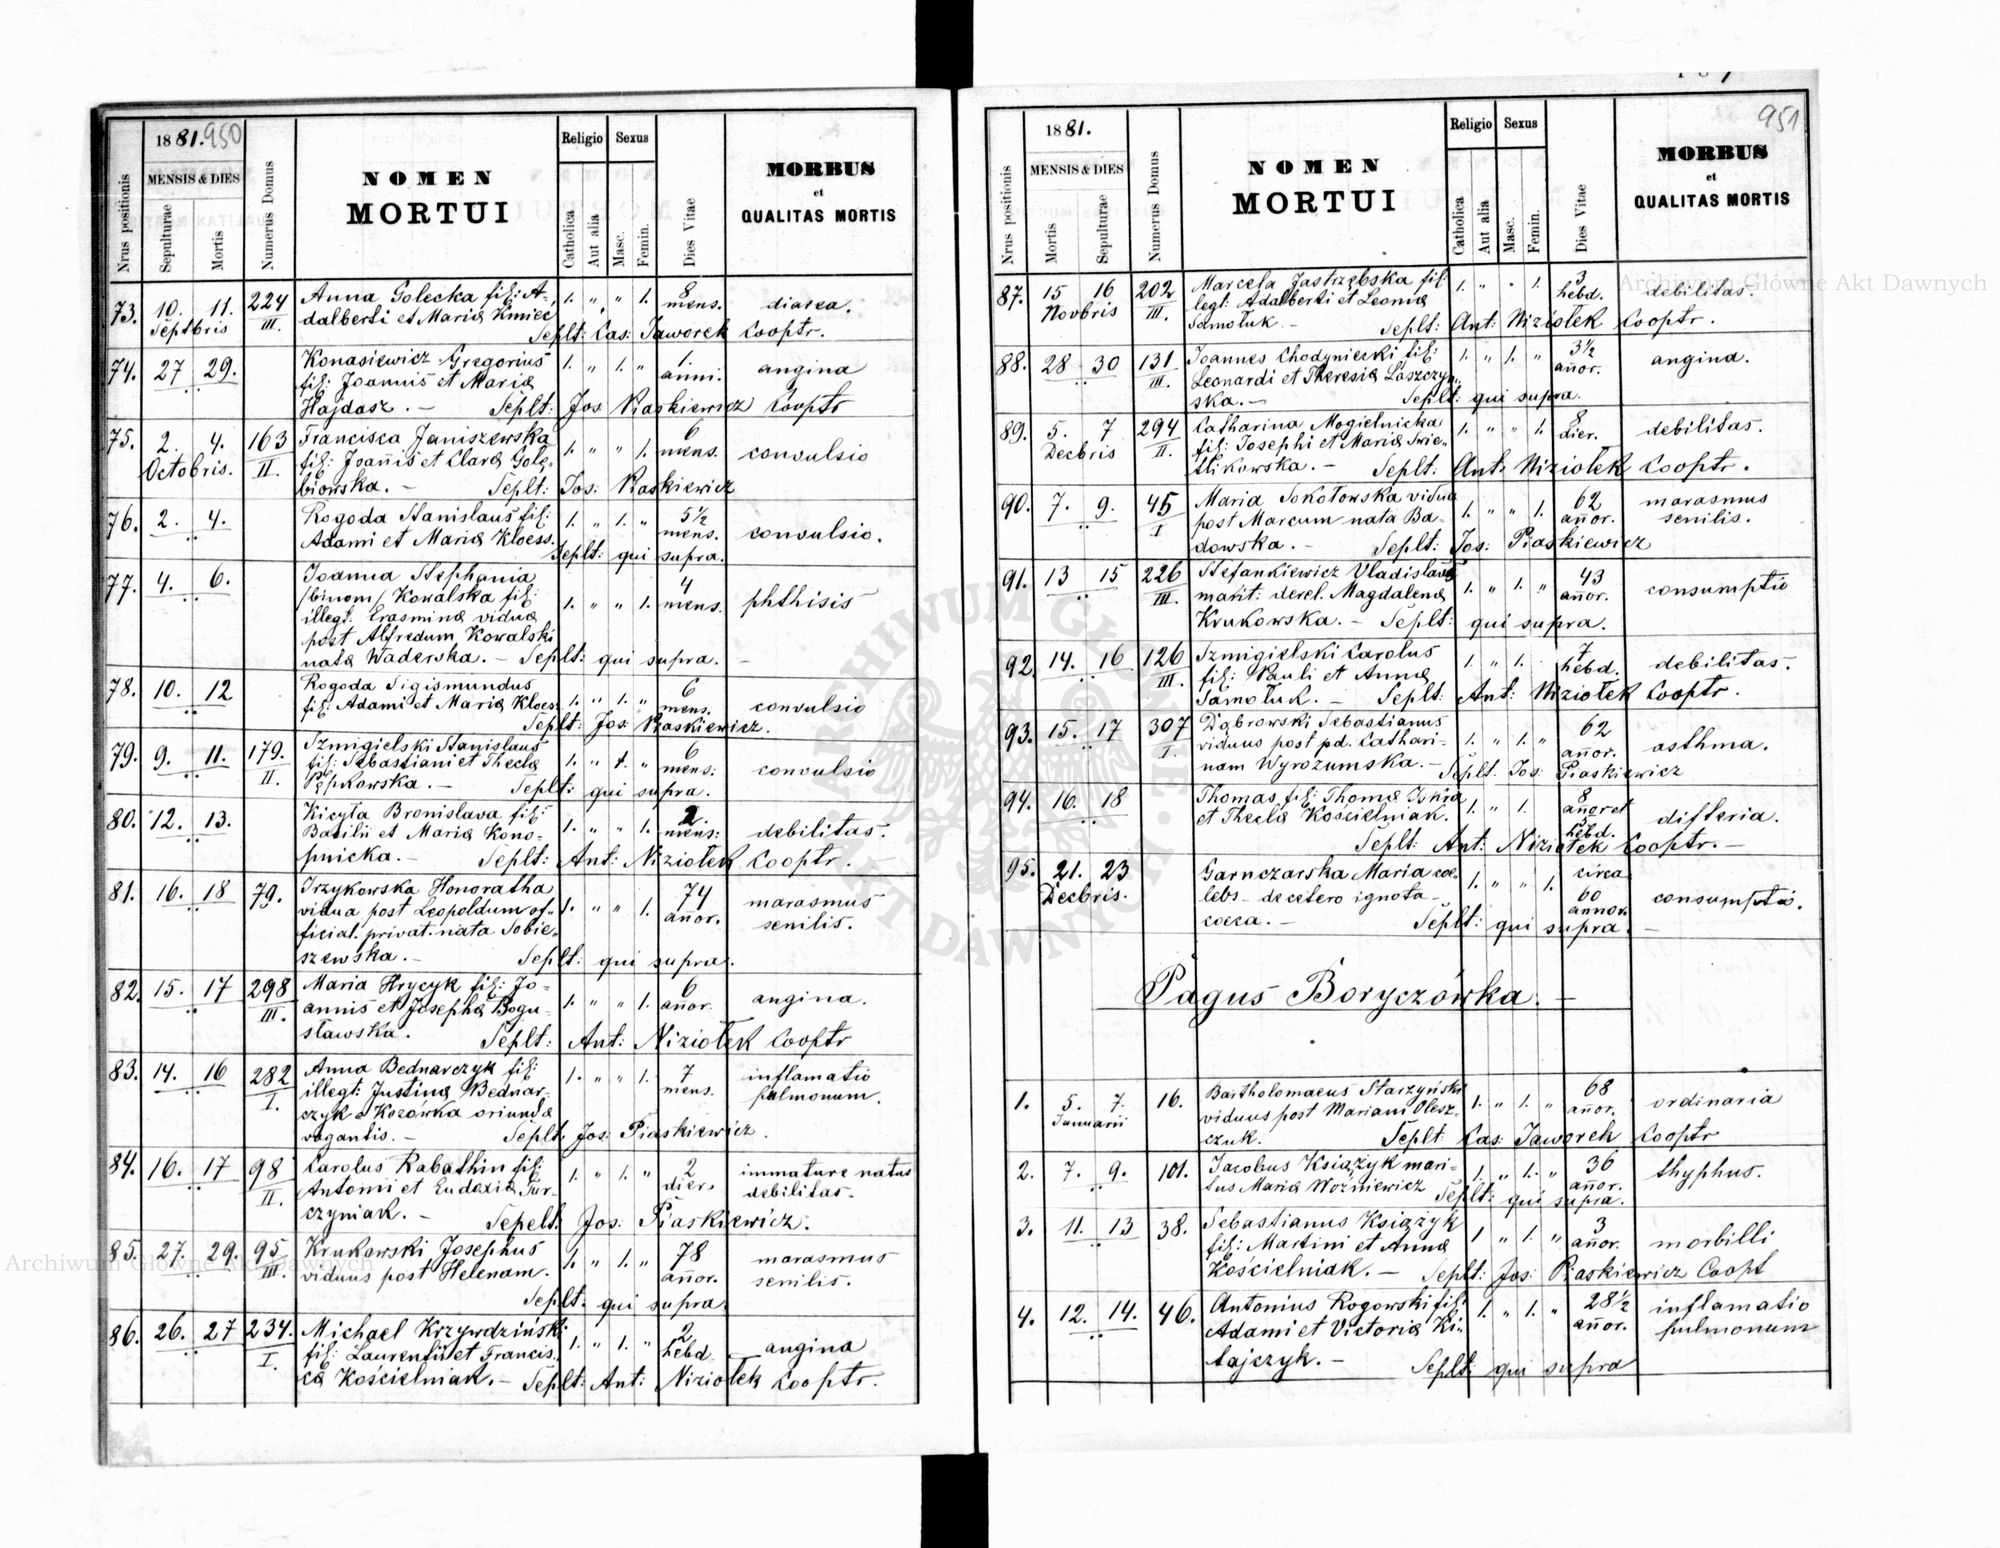 1881. 950
Religio Sexus
MENSIS & DIES
Nrus positionis
Sepulturae
Mortis
Numerus Domus
NOMEN
MORTUI
Catholica
Aut alia
Masc.
Femin.
Dies Vitae
MORBUS
et
QUALITAS MORTIS
73. 10. 11. 224 Anna Golecka fil: A- 1. " " 1. 8
Septbris III. dalberti et Mariæ Kmieć mens. diarea.
Seplt: Cas: Jaworek Cooptr.
74. 27 29. Konasiewicz Gregorius 1. " 1. " 1.
fil: Joannis et Mariæ anni. angina
Hajdasz. — Seplt: Jos Piaskiewicz Cooptr
75. 2. 4. 163 Francisca Janiszewska 1. " " 1. 6
Octobris. II. fil: Joañis et Claræ Golę- mens. convulsio
biowska. — Seplt: Jos: Piaskiewicz
76. 2. 4. Rogoda Stanislaus fil: 1. " 1. " 5½
Adami et Mariæ Kloess. mens. convulsio.
Seplt: qui supra.
77. 4. 6. Joanna Stephania 4
/binom/ Kowalska fil: 1. " " 1. mens. phthisis
illegt. Erasminæ viduæ
post Alfredum Kowalski
natæ Waderska. — Seplt: qui supra. —
78. 10. 12 Rogoda Sigismundus 6
fil: Adami et Mariæ Kloess 1. " 1. " mens. convulsio
Seplt: Jos: Piaskiewicz.
79. 9. 11. 179. Szmigielski Stanislaus 6
II. fil: Sebastiani et Theclæ 1. " 1. " mens: convulsio
Pępkowska. — Seplt: qui supra.
80. 12. 13. Kicyła Bronislava fil: 2
Basilii et Mariæ Kono- 1. " " 1. mens: debilitas.
pnicka. — Seplt: Ant: Niziołek Cooptr. —
81. 16. 18 79. Irzykowska Honoratha 74
vidua post Leopoldum of- 1. " " 1. añor. marasmus
ficial. privat. nata Sobie- senilis.
szewska. — Seplt: qui supra.
82. 15. 17 298 Maria Hrycyk fil: Jo- 6
III. annis et Josephæ Bogu- 1. " " 1. añor. angina.
sławska. Seplt: Ant: Niziołek Cooptr
83. 14. 16 282 Anna Bednarczyk fil: 1. " " 1. 7 inflamatio
I. illegt: Justinæ Bednar- mens. pulmonum.
czyk e Kozówka oriundæ
vagantis. — Seplt. Jos: Piaskiewicz.
84. 16. 17 98 Carolus Rabathin fil: 1. " 1. " 2 immature natus
II. Antoni et Eudoxiæ Tur- dier. debilitas.
czyniak. — Sepelt. Jos: Piaskiewicz.
85. 27. 29. 95 Krukowski Josephus 1. " 1. " 78 marasmus
III. viduus post Helenam. añor. senilis.
Seplt: qui supra.
86. 26. 27 234. Michael Krzywdziński 2
I. fil: Laurentii et Francis- 1. " 1. " hebd. angina
cæ Kościelniak. — Seplt: Ant: Niziołek Cooptr.
951
1881.
Religio Sexus
MENSIS & DIES
Nrus positionis
Mortis
Sepulturae
Numerus Domus
NOMEN
MORTUI
Catholica
Aut alia
Masc.
Femin.
Dies Vitae
MORBUS
et
QUALITAS MORTIS
87. 15 16 202 Marcela Jastrzębska fil: 1. " " 1. 3
Novbris III. legt: Adalberti et Leoniæ hebd. debilitas.
Samołuk. — Seplt: Ant: Niziołek Cooptr.
88. 28 30 131 Joannes Chodyniecki fil: 1. " 1. " 3½ angina.
III. Leonardi et Theresiæ Laszczyn- añor.
ska. — Seplt: qui supra.
89. 5. 7 294 Catharina Mogielnicka 1. " " 1. 8 debilitas.
Decbris II. fil: Josephi et Mariæ Swie- dier.
tlikowska. — Seplt: Ant: Niziołek Cooptr.
90. 7. 9. 45 Maria Sokołowska vidua 62 marasmus
I post Marcum nata Ba- 1. " " 1. añor. senilis.
dowska. — Seplt: Jos: Piaskiewicz
91. 13 15 226 Stefankiewicz Vladislaus 43
III. marit: derel. Magdalenæ 1. " 1. " añor. consumptio
Krukowska. — Seplt: qui supra.
92. 14. 16 126 Szmigielski Carolus 7
III. fil: Pauli et Annæ 1. " 1. hebd. debilitas.
Samołuk. — Seplt: Ant: Niziołek Cooptr.
93. 15. 17 307 Dąbrowski Sebastianus 62
I. viduus post pd. Cathari- 1. " 1. " añor. asthma.
nam Wyrozumska. — Seplt. Jos: Piaskiewicz
94. 16. 18 Thomas fil: Thomæ Iskra 8
et Theclæ Kościelniak. 1. " 1. añor et difteria.
3 hebd.
Seplt: Ant: Niziołek Cooptr. —
95. 21. 23 Garnczarska Maria coe- circa
Decbris. lebs — de cetero ignota — 1. " " 1. 60 consumptio.
coeca. — annor.
Seplt: qui supra. —
Pagus Boryczówka. —
1. 5. 7. 16. Bartholomaeus Starzyński 68
Januarii viduus post Mariam Olesz- 1. " 1. " añor. ordinaria
czuk. Seplt: Cas: Jaworek Cooptr
2. 7. 9. 101. Jacobus Książyk mari- 1. " 1. " 36 thyphus.
tus Mariæ Woźniewicz añor.
Seplt: qui supra.
3. 11. 13 38. Sebastianus Książyk 1 " 1. " 3
fil: Martini et Annæ añor. morbilli
Kościelniak. — Seplt: Jos: Piaskiewicz Coopt
4. 12. 14. 46. Antonius Rogowski fil: 1. " 1. " 28½ inflamatio
Adami et Victoriæ Ki- añor. pulmonum
tajczyk. — Seplt: qui supra
Archiwum Główne Akt Dawnych
Archiwum Główne Akt Dawnych
ARCHIWUM GŁÓWNE AKT DAWNYCH